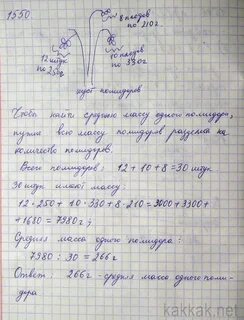 1550
8 плодов
по 210 г.
12 штук
по 250 г
10 плодов
по 330 г
куст помидоров
Чтобы найти среднюю массу одного помидора,
нужно всю массу помидоров разделить на
количество помидоров.
Всего помидоров: 12 + 10 + 8 = 30 штук
30 штук имеют массу:
12 · 250 + 10 · 330 + 8 · 210 = 3000 + 3300 +
+ 1680 = 7980 г;
Средняя масса одного помидора:
7980 : 30 = 266 г
Ответ: 266 г - средняя масса одного поми-
дора
kakkak.net